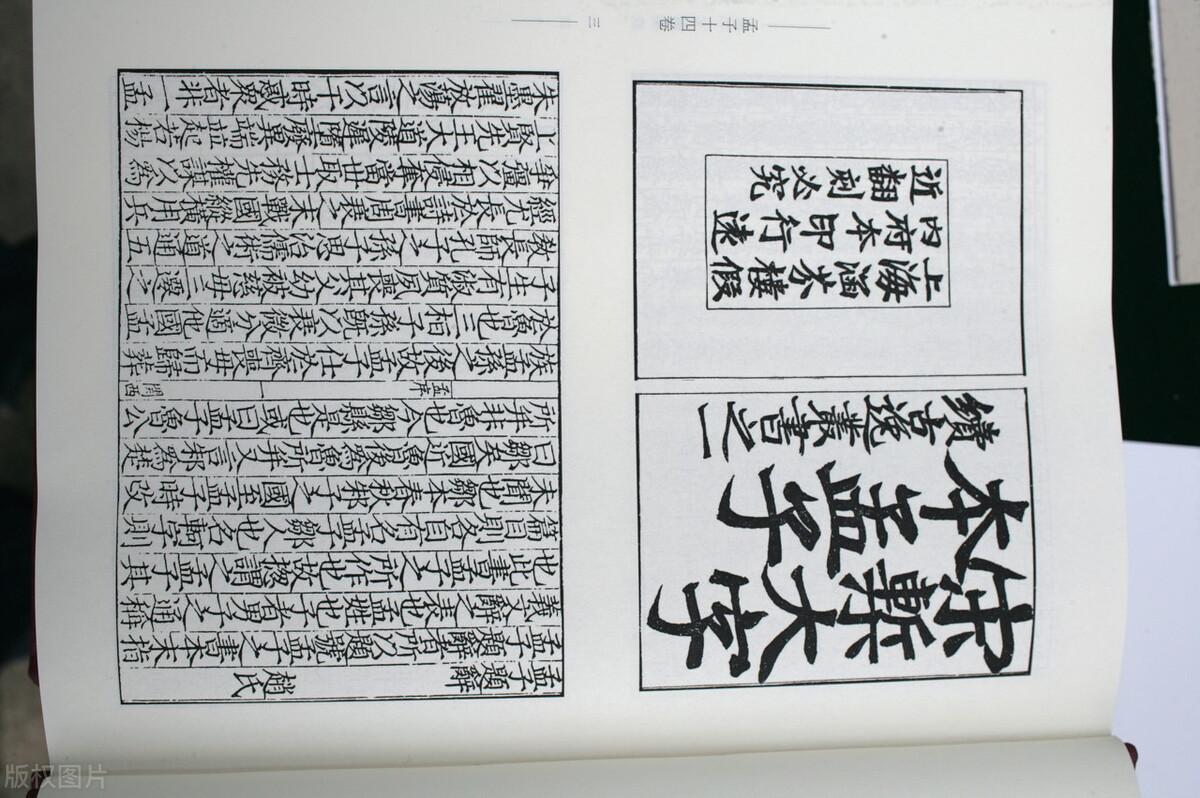 孟子十四卷
三
上海涵芬樓假
內府本印行遠
近翻刻必究
續古逸叢書之一
宋槧大字
本孟子
孟子題辭 趙氏
孟子題辭者所以題號孟子之書本末指
義文辭之表也孟姓也子者男子之通稱
也此書孟子之所作也故揔謂之孟子其
篇目則各自有名孟子鄒人也名軻字則
未聞也鄒本春秋邾子之國至孟子時改
曰鄒矣國近魯後爲魯所并又言邾爲楚
所并非魯也今鄒縣是也或曰孟子魯公
孟序 關西
族孟孫之後故孟子仕於齊喪母而歸葬
於魯也三桓子孫旣以衰微分適他國孟
子生有淑質夙喪其父幼被慈母三遷之
敎長師孔子之孫子思治儒術之道通五
經尤長於詩書周衰之末戰國縱橫用兵
爭彊以相侵奪當世取士務先權謀以爲
上賢先王大道陵遲墮廢異端並起若楊
朱墨翟放蕩之言以干時惑衆者非一孟
版权图片